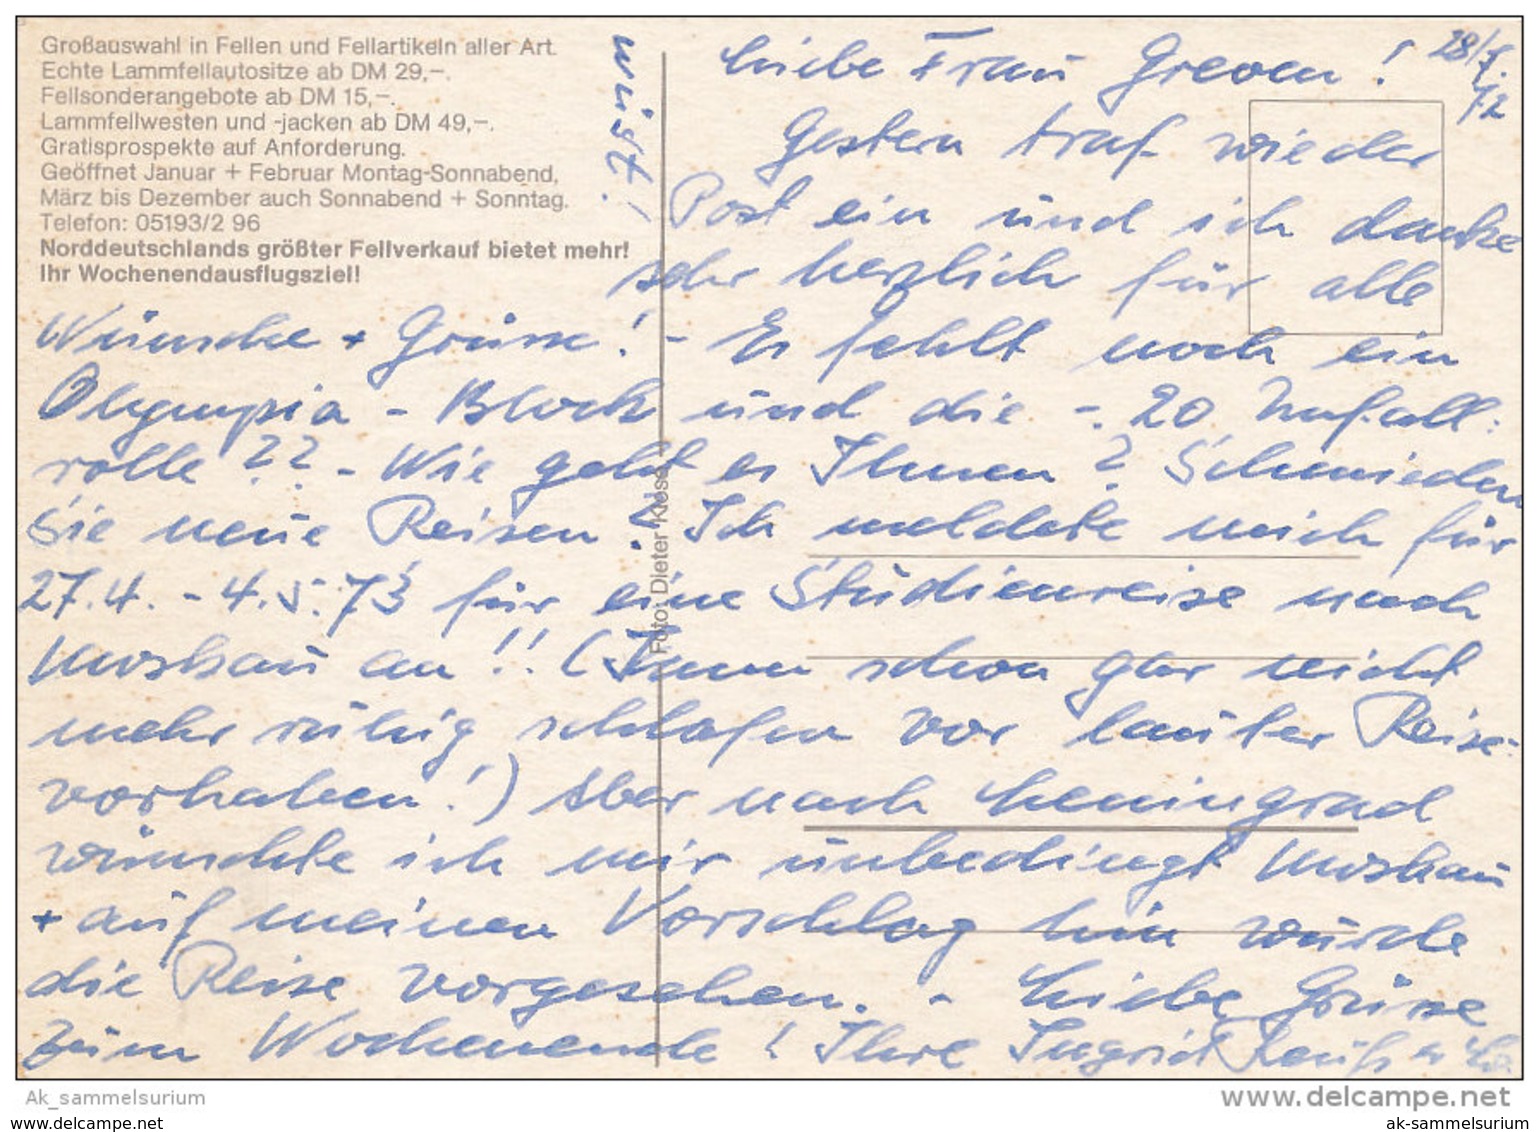 Großauswahl in Fellen und Fellartikeln aller Art.
Echte Lammfellautositze ab DM 29,–.
Fellsonderangebote ab DM 15,–.
Lammfellwesten und -jacken ab DM 49,–.
Gratisprospekte auf Anforderung.
Geöffnet Januar + Februar Montag-Sonnabend,
März bis Dezember auch Sonnabend + Sonntag.
Telefon: 05193/2 96
Norddeutschlands größter Fellverkauf bietet mehr!
Ihr Wochenendausflugsziel!
Foto: Dieter Klose
Liebe Frau Greven!
Gestern traf wieder
Post ein und ich danke
sehr herzlich für alle
Wünsche + Grüsse! - Es fehlt noch ein
Olympia - Block und die -.20
rolle ?? - Wie geht es Ihnen? Schmieden
Sie neue Reisen? Ich meldete mich für
27.4. - 4.5.73 für eine Studienreise nach
Moskau an!! (Kann schon gar nicht
mehr ruhig schlafen vor lauter Reise-
vorhaben!) Aber nach Leningrad
wünschte ich mir unbedingt Moskau
+ auf meinen Vorschlag hin wurde
die Reise vorgesehen. - Liebe Grüsse
zum Wochenende! Ihre Ingrid
Ak_sammelsurium
www.delcampe.net
www.ak-sammelsurium.de
ak-sammelsurium